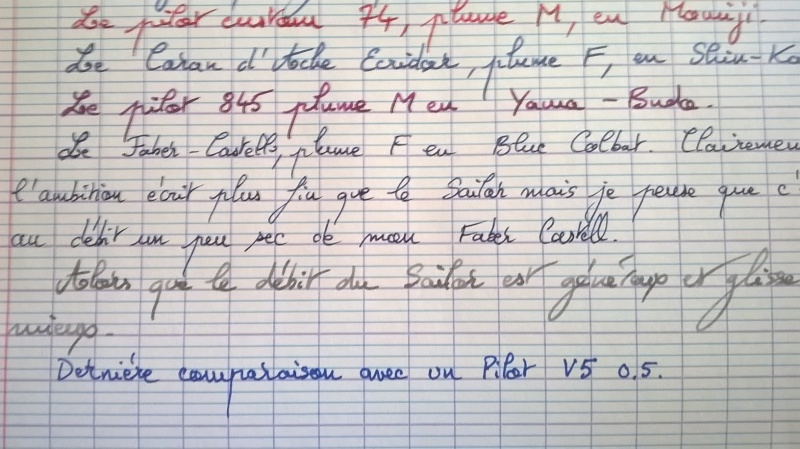 Le pilot custom 74, plume M, en Momiji.
Le Caran d'Ache Ecridor, plume F, en Shin-Ka
Le pilot 845 plume M en Yama-Budo.
Le Faber-Castell, plume F en Blue Colbat. Clairemen
l'ambition écrit plus fin que le Sailor mais je pense que c'
au débit un peu sec de mon Faber Castell.
Alors que le débit du Sailor est généreux et glisse
mieux.
Dernière comparaison avec un Pilot V5 0.5.